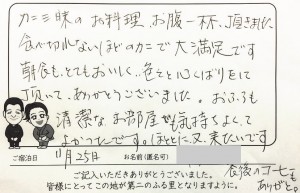 カニ三昧のお料理、お腹一杯、頂きました
食べ切れないほどのカニで大満足です
朝食も、とてもおいしく、色々と心くばりをして
頂いて、ありがとうございました。おふろも
清潔なお部屋が気持ちよくて
よかったです。ほんとに又、来たいです
ご宿泊日
11月25日
お名前(匿名可)
ご記入いただきありがとうございました。
皆様にとってこの地が第二のふる里となりますように。
食後のコーヒーも
ありがとう。